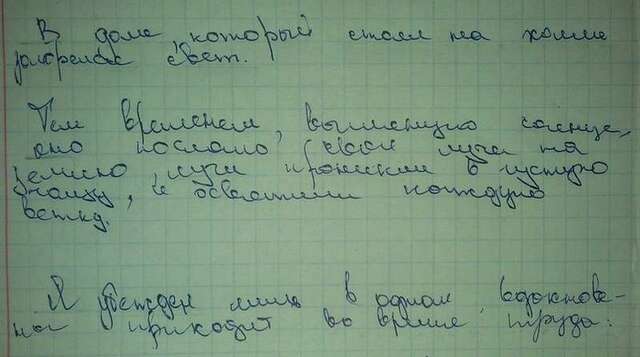 В доме, который стоял на холме
загорелся свет.
Тем временем, выглянуло солнце,
оно послало свои лучи на
землю, лучи проникли в густую
чащу, и осветили каждую
ветку.
Я убежден лишь в одном вдохнове-
ние приходит во время труда.